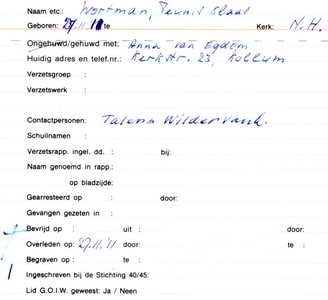 Naam etc.: Wortman, Teunis Klaas
Geboren: 27.11.11 te Kerk: N.H.
Ongehuwd/gehuwd met: Anna van Egdom
Huidig adres en telef.nr.: Kerkstr. 23, Kollum
Verzetsgroep :
Verzetswerk :
Contactpersonen: Talens Wildervank.
Schuilnamen :
Verzetsrapp. ingel. dd. : bij:
Naam genoemd in rapp.:
op bladzijde:
Gearresteerd op : door:
Gevangen gezeten in :
Bevrijd op : uit : door:
Overleden op: 27.11.'11 door: te :
Begraven op : te :
Ingeschreven bij de Stichting 40/45:
Lid G.O.I.W. geweest: Ja / Neen